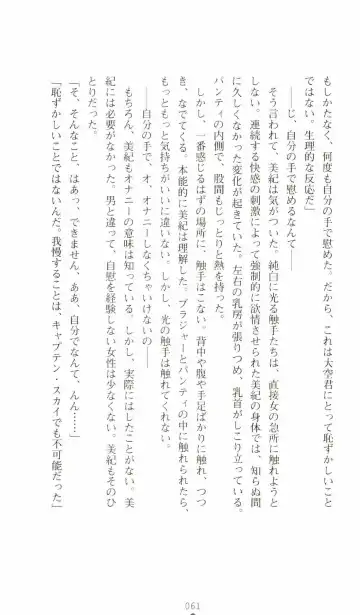 もしかたなく、何度も自分の手で慰めた。だから、これは大空君にとって恥ずかしいこと
ではない。生理的な反応だ」
――じ、自分の手で慰めるなんて――
そう言われて、美紀は気がついた。純白に光る触手たちは、直接女の急所に触れようと
しない。連続する快感の刺激によって強制的に欲情させられた美紀の身体では、知らぬ間
に久しくなかった変化が起きていた。左右の乳房が張りつめ、乳首がしこり立っている。
パンティの内側で、股間もじっとりと熱を持った。
しかし、一番感じるはずの場所に、触手はこない。背中や腹や手足ばかりに触れ、つつ
き、なでてくる。本能的に美紀は理解した。ブラジャーとパンティの中に触れられたら、
もっともっと気持ちがいいに違いない。しかし、光の触手は触れてくれない。
――自分の手で、オ、オナニーしなくちゃいけないの――
もちろん、美紀もオナニーの意味は知っている。しかし、実際にはしたことがない。美
紀には必要がなかった。男と違って、自慰を経験しない女性は少なくない。美紀もそのひ
とりだった。
「そ、そんなこと、はあっ、できません、ああ、自分でなんて、んん……」
「恥ずかしいことではないんだ。我慢することは、キャプテン・スカイでも不可能だった」
061